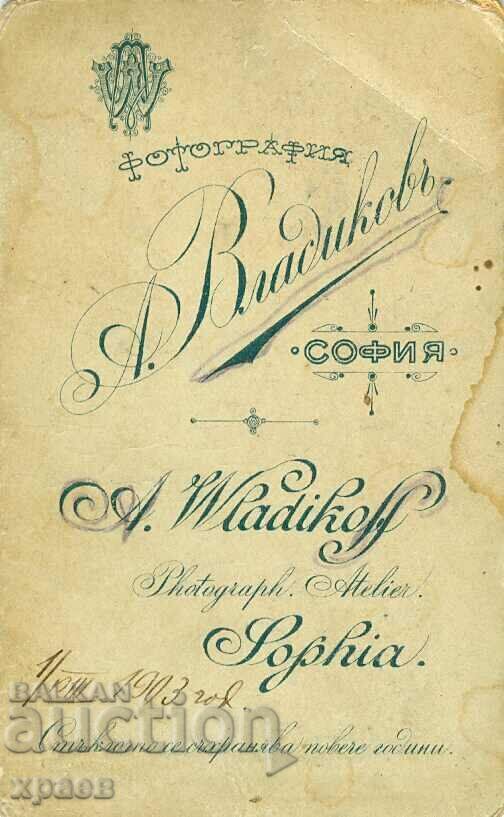 ФОТОГРАФИЯ
А. Владиковъ
СОФИЯ
A. Wladikoff
Photograph. Atelier.
Sophia.
1903 год.
BALKAN
auction
Стъклото се съхранява повече години.
храев